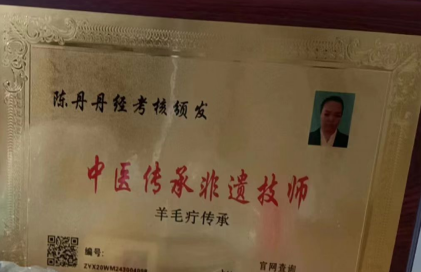 陈丹丹经考核颁发
中医传承非遗技师
羊毛疔传承
编号:
官网查询